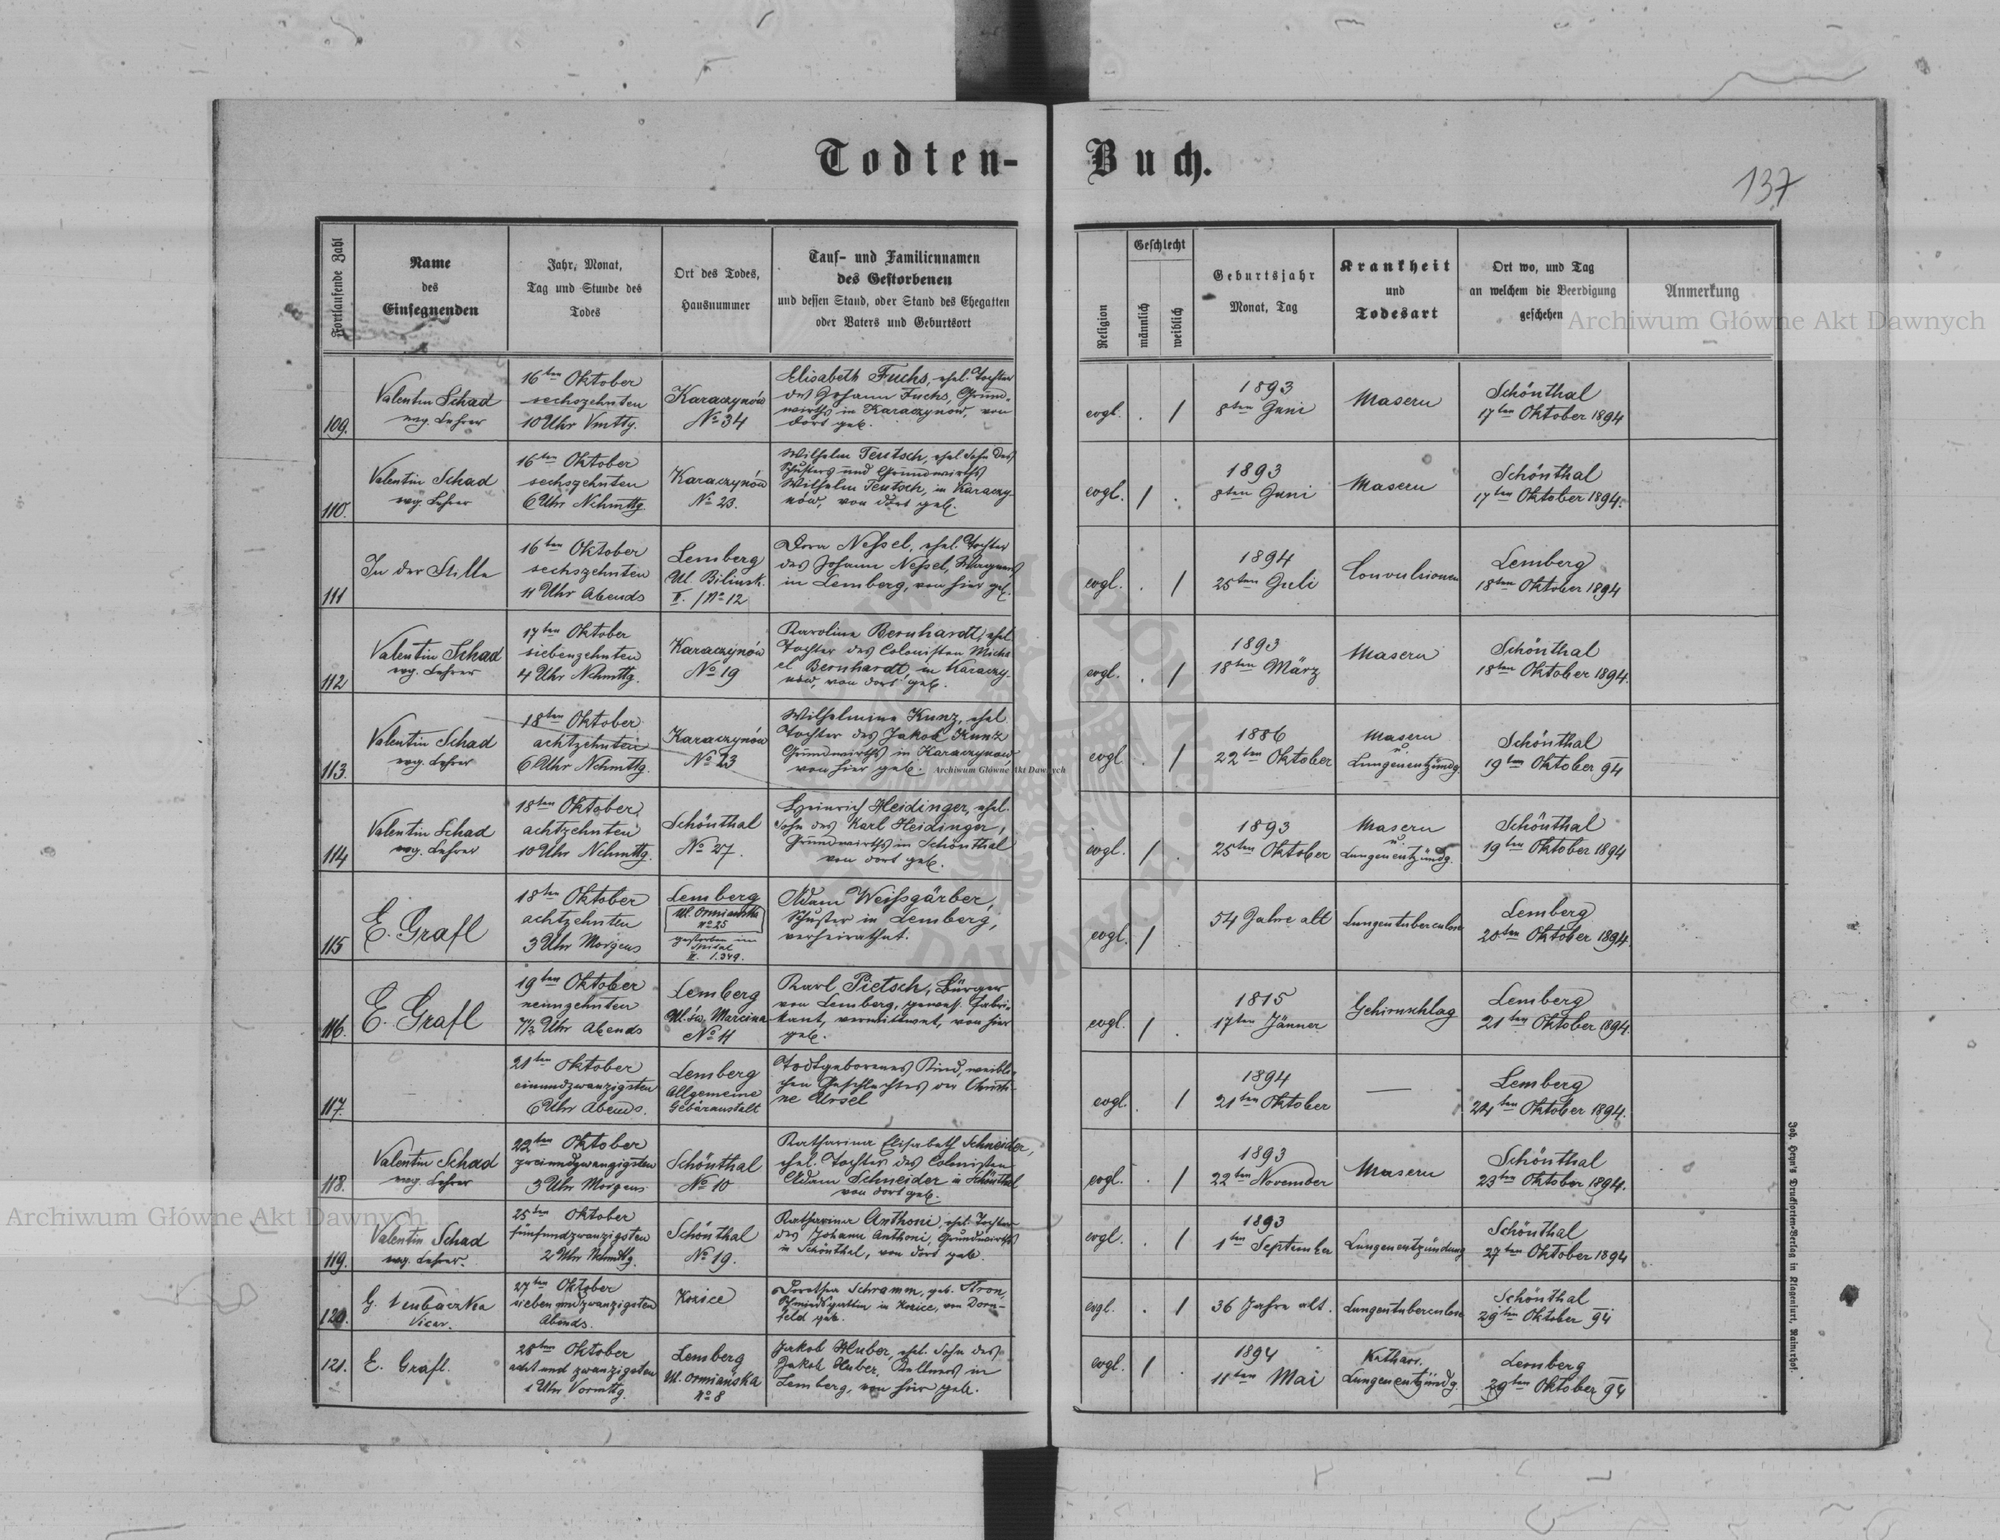 Todten-Buch.
137
Fortlaufende Zahl
Name
des
Einsegnenden
Jahr, Monat,
Tag und Stunde des
Todes
Ort des Todes,
Hausnummer
Tauf- und Familiennamen
des Gestorbenen
und dessen Stand, oder Stand des Ehegatten
oder Vaters und Geburtsort
Religion
Geschlecht
männlich
weiblich
Geburtsjahr
Monat, Tag
Krankheit
und
Todesart
Ort wo, und Tag
an welchem die Beerdigung
geschehen
Anmerkung
Archiwum Główne Akt Dawnych
109.
Valentin Schad
evg. Lehrer
16ten Oktober
sechszehnten
10 Uhr Vmttg.
Karaczynów
No 34
Elisabeth Fuchs, ehel. Tochter
des Johann Fuchs, Grund-
wirths in Karaczynow, von
dort geb.
evgl.
. /
1893
8ten Juni
Masern
Schönthal
17ten Oktober 1894
110.
Valentin Schad
evg. Lehrer
16ten Oktober
sechszehnten
6 Uhr Nchmttg.
Karaczynów
No 23.
Wilhelm Teutsch, ehel. Sohn des
Schusters und Grundwirths
Wilhelm Teutsch, in Karaczy-
nów, von dort geb.
evgl.
/ .
1893
8ten Juni
Masern
Schönthal
17ten Oktober 1894.
111
In der Stille
16ten Oktober
sechszehnten
11 Uhr Abends
Lemberg
Ul. Bilinsk.
II. / No 12
Dora Neßel, ehel. Tochter
des Johann Neßel, Wagners
in Lemberg, von hier geb.
evgl.
. /
1894
25ten Juli
Convulsionen
Lemberg
18ten Oktober 1894
112
Valentin Schad
evg. Lehrer
17ten Oktober
siebenzehnten
4 Uhr Nchmttg.
Karaczynów
No 19
Karoline Bernhardt, ehel.
Tochter des Colonisten Micha
el Bernhardt, in Karaczy-
now, von dort geb.
evgl.
. /
1893
18ten März
Masern
Schönthal
18ten Oktober 1894.
113.
Valentin Schad
evg. Lehrer
18ten Oktober
achtzehnten
6 Uhr Nchmttg.
Karaczynów
No 23
Wilhelmine Kunz, ehel.
Tochter des Jakob Kunz
Grundwirths in Karaczynow,
von hier geb.
Archiwum Główne Akt Dawnych
evgl
. /
1886
22ten Oktober
Masern
u.
Lungenentzündg.
Schönthal
19ten Oktober 94
114
Valentin Schad
evg. Lehrer
18ten Oktober
achtzehnten
10 Uhr Nchmttg.
Schönthal
No 27.
Heinrich Heidinger, ehel.
Sohn des Karl Heidinger,
Grundwirths in Schönthal
von dort geb.
evgl.
/ .
1893
25ten Oktober
Masern
u.
Lungenentzündg.
Schönthal
19ten Oktober 1894
115
E. Grafl
18ten Oktober
achtzehnten
3 Uhr Morgens
Lemberg
Ul. Ormiańska
No 25
gestorben im
Spital
II. 1.349.
Adam Weißgärber,
Schuster in Lemberg,
verheirathet.
evgl.
/
54 Jahre alt
Lungentuberculose
Lemberg
20ten Oktober 1894
116.
E. Grafl
19ten Oktober
neunzehnten
7½ Uhr Abends
Lemberg
Ul. św. Marcina
No 11
Karl Pietsch, Bürger
von Lemberg, gewes. Fabri-
kant, verwittwet, von hier
geb.
evgl.
/ .
1815
17ten Jänner
Gehirnschlag
Lemberg
21ten Oktober 1894.
117.
21ten Oktober
einundzwanzigsten
6 Uhr Abends.
Lemberg
Allgemeine
Gebäranstalt
Todtgeborenes Kind, weibli-
chen Geschlechtes der Christi-
ne Ursel
evgl.
. /
1894
21ten Oktober
—
Lemberg
24ten Oktober 1894.
118.
Valentin Schad
evg. Lehrer
22ten Oktober
zweiundzwanzigsten
3 Uhr Morgens
Schönthal
No 10
Katharina Elisabeth Schneider,
ehel. Tochter des Colonisten
Adam Schneider in Schönthal
von dort geb.
evgl.
. /
1893
22ten November
Masern
Schönthal
23ten Oktober 1894.
119.
Valentin Schad
evg. Lehrer.
25ten Oktober
fünfundzwanzigsten
2 Uhr Nchmttg.
Schönthal
No 19.
Katharina Anthoni, ehel. Tochter
des Johann Anthoni, Grundwirths
in Schönthal, von dort geb.
evgl.
. /
1893
1ten September
Lungenentzündung
Schönthal
27ten Oktober 1894
120.
G. Neubaczka
Vicar.
27ten Oktober
siebenundzwanzigsten
Abends.
Kozice
Dorothea Schramm, geb. Stron,
Schmiedsgattin in Kozice, von Dorn-
feld geb.
evgl.
. /
36 Jahre alt.
Lungentuberculose
Schönthal
29ten Oktober 94
121.
E. Grafl.
28ten Oktober
acht und zwanzigsten
1 Uhr Vormttg.
Lemberg
Ul. Ormiańska
No 8
Jakob Huber, ehel. Sohn des
Jakob Huber, Kellners in
Lemberg, von hier geb.
evgl.
/ .
1894
11ten Mai
Kathar.
Lungenentzündg.
Lemberg
29ten Oktober 94
Archiwum Główne Akt Dawnych
Joh. Heyn's Drucksorten-Verlag in Klagenfurt, Rainerhof.